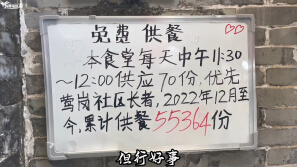 免费供餐
本食堂每天中午11:30
~12:00供应70份,优先
莺岗社区长者,2022年12月至
今,累计供餐55364份
但行好事